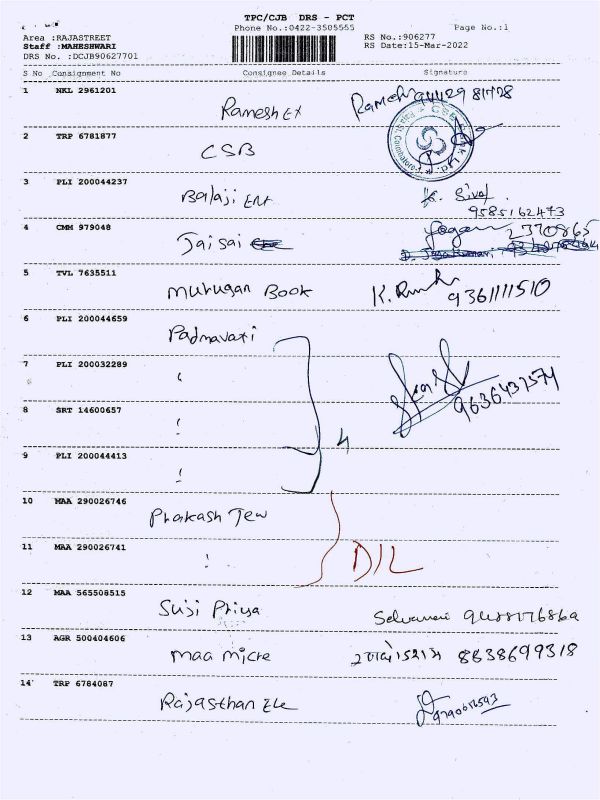 TPC/CJB DRS - PCT
Phone No.:0422-3505555 Page No.:1
Area :RAJASTREET RS No.:906277
Staff :MAHESHWARI RS Date:15-Mar-2022
DRS No. :DCJB90627701
S No Consignment No Consignee Details Signature
1 NKL 2961201 Ramesh Ex Ramesh
2 TRP 6781877 CSB
3 PLI 200044237 Balaji Ent K. Siva
9585162473
4 CMM 979048 Jai sai 2370865
5 TVL 7635511 Murugan Book 9361111510
6 PLI 200044659 Padmavati
7 PLI 200032289
9636437574
8 SRT 14600657
4
9 PLI 200044413
10 MAA 290026746 Prakash Jew
11 MAA 290026741 D/L
12 MAA 565508515 Suji Priya Selvamani
13 AGR 500404606 Maa Micre 8838699318
14 TRP 6784087 Rajasthan Ele